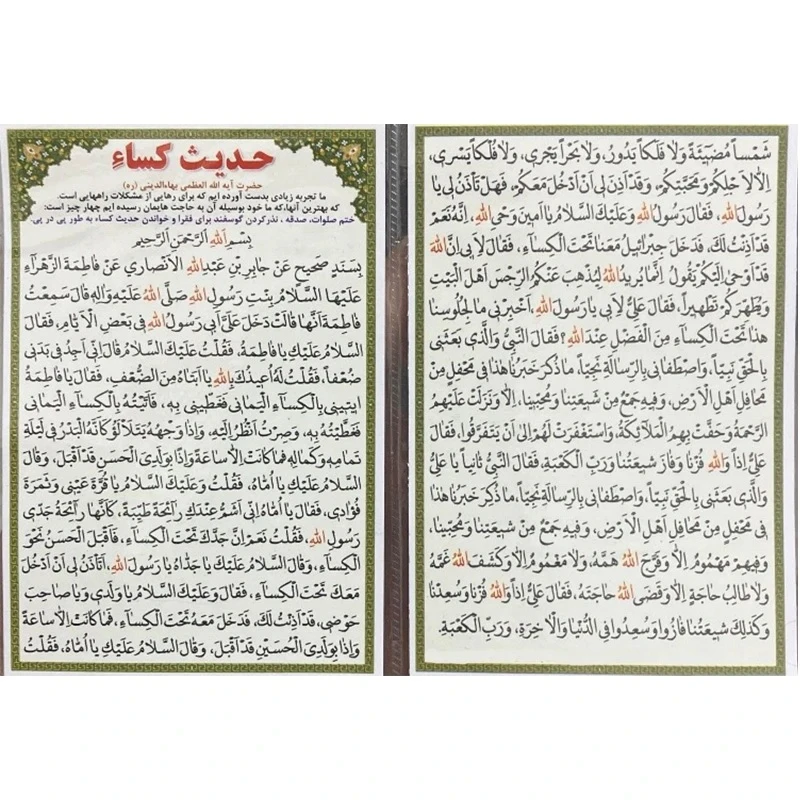 حدیث کساء
حضرت آیه الله العظمی بهاءالدینی (ره)
ما تجربه زیادی بدست آورده ایم که برای رهایی از مشکلات راههایی است.
که بهترین آنها،که ما خود بوسیله آن به حاجت هایمان رسیده ایم چهار چیز است:
ختم صلوات، صدقه ، نذرکردن گوسفند برای فقرا و خواندن حدیث کساء به طور پی در پی.
بِسْمِ اللهِ الرَّحْمٰنِ الرَّحیمِ
بِسَنَدٍ صَحیحٍ عَنْ جابِرِ بْنِ عَبْدِ اللهِ الْاَنْصاری عَنْ فاطِمَةَ الزَّهْرآءِ
عَلَیْهَا السَّلامُ بِنْتِ رَسُولِ اللهِ صَلَّی اللهُ عَلَیْهِ وَالِهِ قالَ سَمِعْتُ
فاطِمَةَ اَنَّها قالَتْ دَخَلَ عَلَیَّ اَبی رَسُولُ اللهِ فی بَعْضِ الْاَیّامِ، فَقالَ
السَّلامُ عَلَیْكِ یا فاطِمَةُ، فَقُلْتُ عَلَیْكَ السَّلامُ قالَ اِنّی اَجِدُ فی بَدَنی
ضُعْفاً، فَقُلْتُ لَهُ اُعیذُكَ بِاللهِ یا اَبَتاهُ مِنَ الضُّعْفِ، فَقالَ یا فاطِمَةُ
ایتینی بِالْکِسآءِ الْیَمانی فَغَطّینی بِهِ، فَاَتَیْتُهُ بِالْکِسآءِ الْیَمانی
فَغَطَّیْتُهُ بِهِ، وَصِرْتُ اَنْظُرُ اِلَیْهِ، وَاِذا وَجْهُهُ یَتَلَأْلَؤُ کَاَنَّهُ الْبَدْرُ فی لَیْلَةِ
تَمامِهِ وَکَمالِهِ فَما کانَتْ اِلّا ساعَةً وَاِذا بِوَلَدِیَ الْحَسَنِ قَدْ اَقْبَلَ، وَقالَ
السَّلامُ عَلَیْكِ یا اُمّاهُ، فَقُلْتُ وَعَلَیْكَ السَّلامُ یا قُرَّةَ عَیْنی وَثَمَرَةَ
فُؤادی، فَقالَ یا اُمّاهُ اِنّی اَشَمُّ عِنْدَكِ رآئِحَةً طَیِّبَةً، کَاَنَّها رآئِحَةُ جَدّی
رَسُولِ اللهِ، فَقُلْتُ نَعَمْ اِنَّ جَدَّكَ تَحْتَ الْکِسآءِ، فَاَقْبَلَ الْحَسَنُ نَحْوَ
الْکِسآءِ، وَقالَ السَّلامُ عَلَیْكَ یا جَدّاهُ یا رَسُولَ اللهِ، اَتَاْذَنُ لی اَنْ اَدْخُلَ
مَعَكَ تَحْتَ الْکِسآءِ، فَقالَ وَعَلَیْكَ السَّلامُ یا وَلَدی وَیا صاحِبَ
حَوْضی، قَدْ اَذِنْتُ لَكَ، فَدَخَلَ مَعَهُ تَحْتَ الْکِسآءِ، فَما کانَتْ اِلّا ساعَةً
وَاِذا بِوَلَدِیَ الْحُسَیْنِ قَدْ اَقْبَلَ، وَقالَ السَّلامُ عَلَیْكِ یا اُمّاهُ، فَقُلْتُ
شَمْساً مُضیئَةً وَلا فَلَکاً یَدُورُ، وَلا بَحْراً یَجْری، وَلا فُلْکاً یَسْری،
اِلّا لِاَجْلِکُمْ وَمَحَبَّتِکُمْ، وَقَدْ اَذِنَ لی اَنْ اَدْخُلَ مَعَکُمْ، فَهَلْ تَاْذَنُ لی یا
رَسُولَ اللهِ، فَقالَ رَسُولُ اللهِ وَعَلَیْكَ السَّلامُ یا اَمینَ وَحْیِ اللهِ، اِنَّهُ نَعَمْ
قَدْ اَذِنْتُ لَكَ، فَدَخَلَ جِبْرآئیلُ مَعَنا تَحْتَ الْکِسآءِ، فَقالَ لِاَبی اِنَّ اللهَ
قَدْ اَوْحی اِلَیْکُمْ یَقُولُ اِنَّما یُریدُ اللهُ لِیُذْهِبَ عَنْکُمُ الرِّجْسَ اَهْلَ الْبَیْتِ
وَیُطَهِّرَکُمْ تَطْهیراً، فَقالَ عَلِیٌّ لِاَبی یا رَسُولَ اللهِ، اَخْبِرْنی ما لِجُلُوسِنا
هٰذا تَحْتَ الْکِسآءِ مِنَ الْفَضْلِ عِنْدَ اللهِ؟ فَقالَ النَّبِیُّ وَالَّذی بَعَثَنی
بِالْحَقِّ نَبِیّاً، وَاصْطَفانی بِالرِّسالَةِ نَجِیّاً، ما ذُکِرَ خَبَرُنا هٰذا فی مَحْفِلٍ مِنْ
مَحافِلِ اَهْلِ الْاَرْضِ، وَفیهِ جَمْعٌ مِنْ شیعَتِنا وَمُحِبّینا، اِلّا وَنَزَلَتْ عَلَیْهِمُ
الرَّحْمَةُ وَحَفَّتْ بِهِمُ الْمَلآئِکَةُ، وَاسْتَغْفَرَتْ لَهُمْ اِلی اَنْ یَتَفَرَّقُوا، فَقالَ
عَلِیٌّ اِذاً وَاللهِ فُزْنا وَفازَ شیعَتُنا وَرَبِّ الْکَعْبَةِ، فَقالَ النَّبِیُّ ثانِیاً یا عَلِیُّ
وَالَّذی بَعَثَنی بِالْحَقِّ نَبِیّاً، وَاصْطَفانی بِالرِّسالَةِ نَجِیّاً، ما ذُکِرَ خَبَرُنا هٰذا
فی مَحْفِلٍ مِنْ مَحافِلِ اَهْلِ الْاَرْضِ، وَفیهِ جَمْعٌ مِنْ شیعَتِنا وَمُحِبّینا،
وَفیهِمْ مَهْمُومٌ اِلّا وَفَرَّجَ اللهُ هَمَّهُ، وَلا مَغْمُومٌ اِلّا وَکَشَفَ اللهُ غَمَّهُ
وَلا طالِبُ حاجَةٍ اِلّا وَقَضَی اللهُ حاجَتَهُ، فَقالَ عَلِیٌّ اِذاً وَاللهِ فُزْنا وَسُعِدْنا
وَکَذٰلِكَ شیعَتُنا فازُوا وَسُعِدُوا فِی الدُّنْیا وَالْاٰخِرَةِ، وَرَبِّ الْکَعْبَةِ.